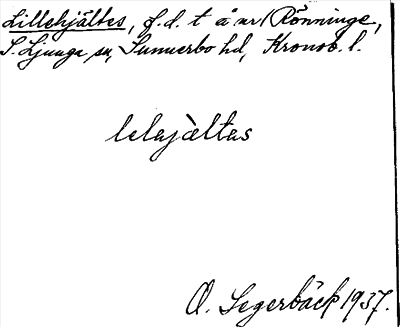 Lillehjältes, f.d. t å nr 1 Rönninge,
S. Ljunga sn, Sunnerbo hd, Kronob. l.
lelajàltas
O. Segerbäck 1937.